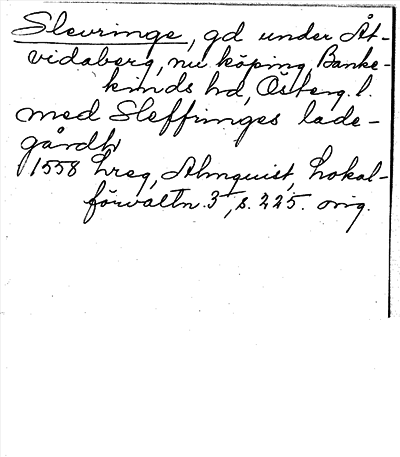 Slevringe, gd under Åt-
vidaberg, nu köping, Banke-
kinds hd, Österg. l.
med Sleffringes lade-
gårdh
1558 hreg, Almquist, Lokal-
förvaltn. 3, s. 225. orig.